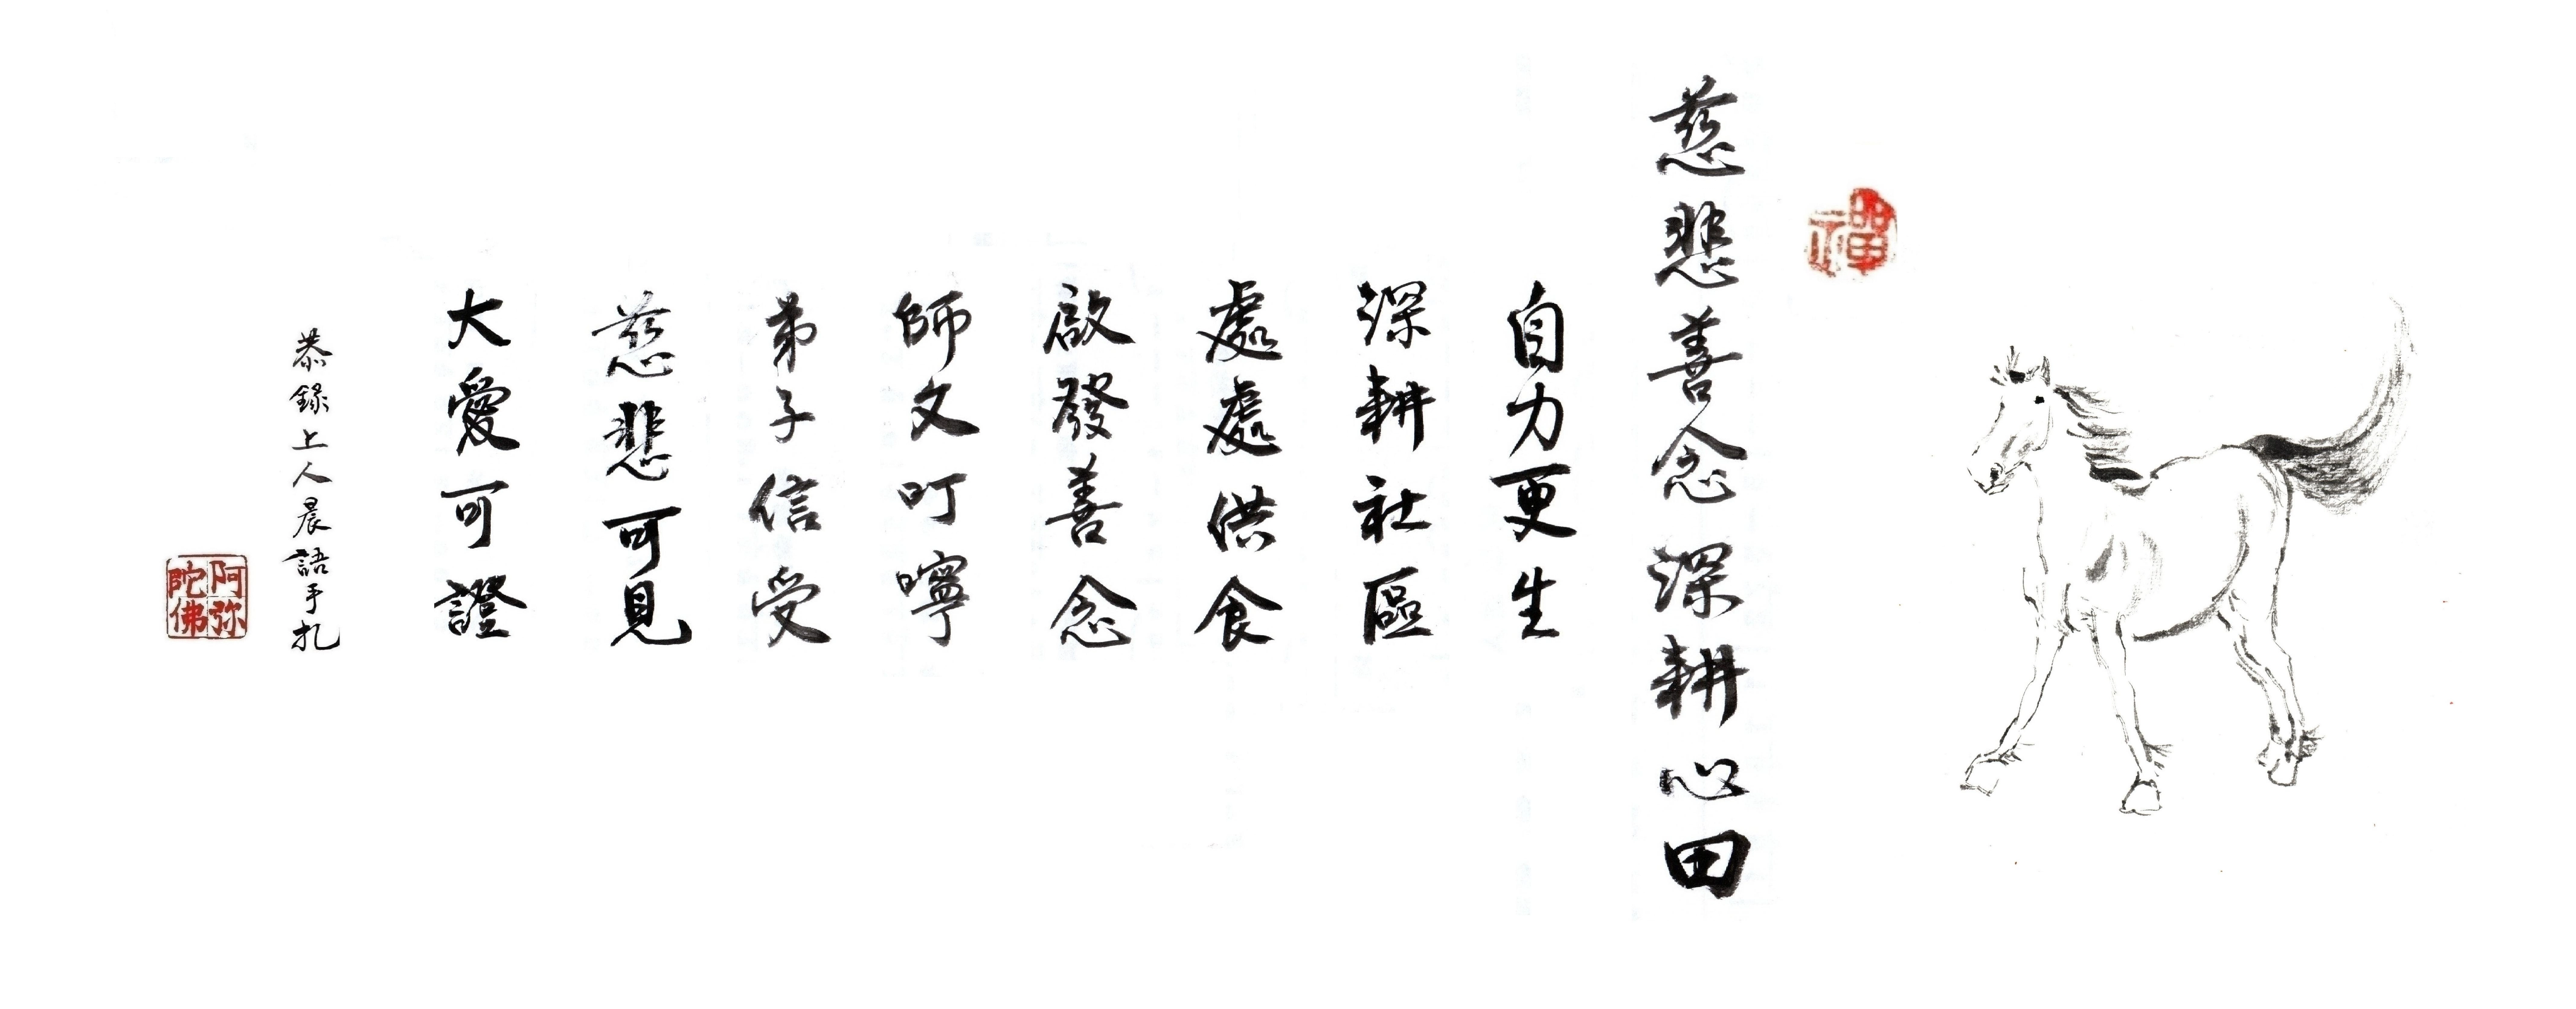 禪
慈悲善念深耕心田
自力更生
深耕社區
處處供食
啟發善念
師文叮嚀
弟子信受
慈悲可見
大愛可證
恭錄上人晨語手扎
阿弥
陀佛